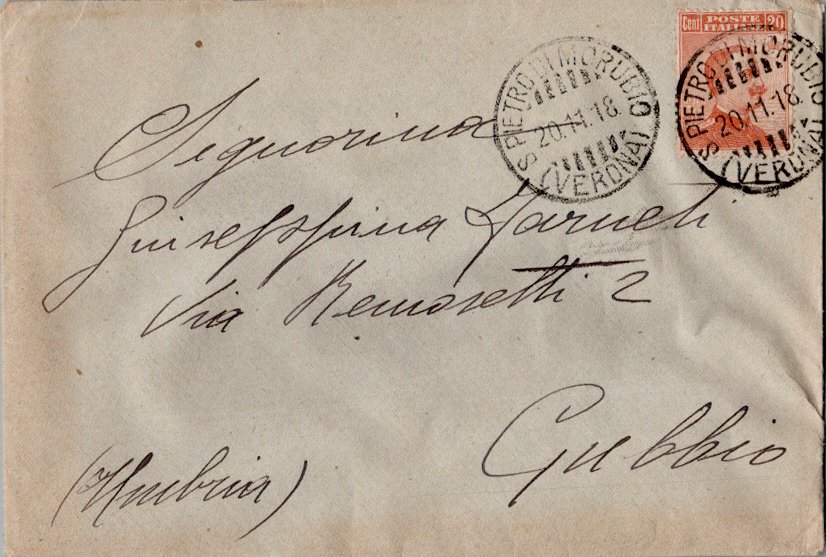 Cent POSTE ITALIANE 20
S. PIETRO DI MORUBIO (VERONA)
20.11.18.
S. PIETRO DI MORUBIO (VERONA)
20.11.18.
Signorina
Giuseppina
Via 2
Gubbio
(Umbria)